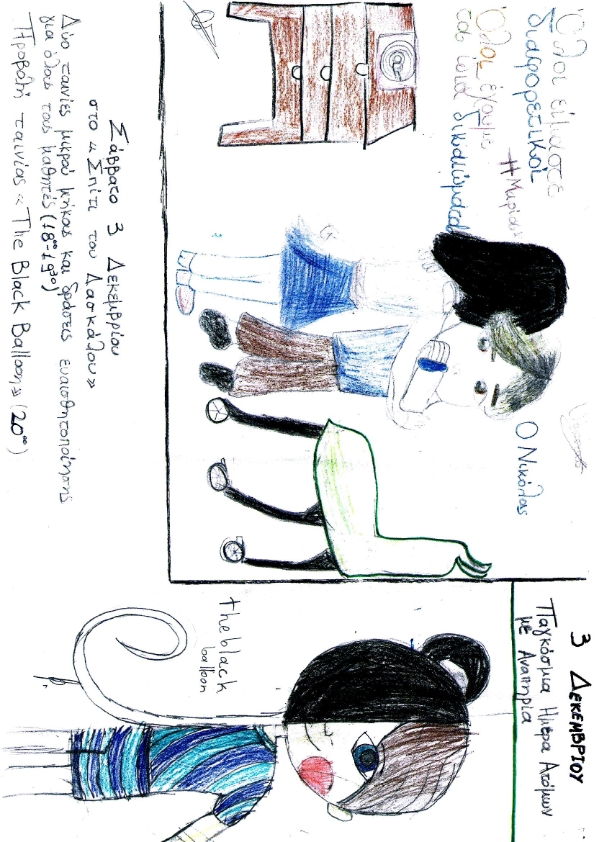 Όλοι είμαστε
διαφορετικοί
Όλοι έχουμε
τα ίδια δικαιώματα
Ο Νικόλας
3 ΔΕΚΕΜΒΡΙΟΥ
Παγκόσμια Ημέρα Ατόμων
με Αναπηρία
the black
balloon
Σάββατο 3 Δεκεμβρίου
στο «Σπίτι του Δασκάλου»
Δύο ταινίες μικρού μήκους και δράσεις ευαισθητοποίησης
για όλους τους μαθητές (18⁰⁰-19³⁰)
Προβολή ταινίας «The Black Balloon» (20⁰⁰)